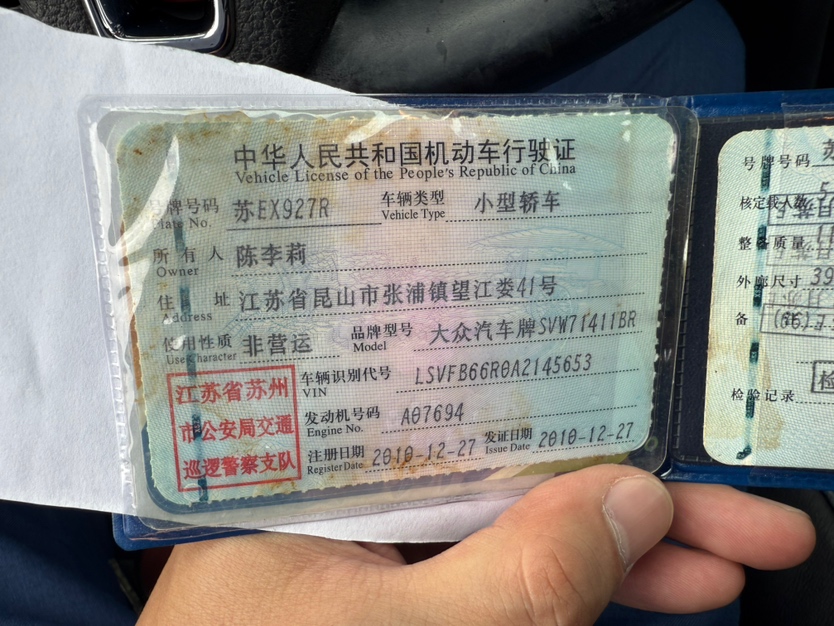 中华人民共和国机动车行驶证
Vehicle License of the People's Republic of China
号牌号码 苏EX927R 车辆类型 小型轿车
Plate No. Vehicle Type
所有人 陈李莉
Owner
住址 江苏省昆山市张浦镇望江娄41号
Address
使用性质 非营运 品牌型号 大众汽车牌SVW71411BR
Use Character Model
江苏省苏州
市公安局交通
巡逻警察支队
车辆识别代号 LSVFB66R0A2145653
VIN
发动机号码 A07694
Engine No.
注册日期 2010-12-27 发证日期 2010-12-27
Register Date Issue Date
号牌号码 苏
核定载人数
整备质量
外廓尺寸 39
备
检验记录 检